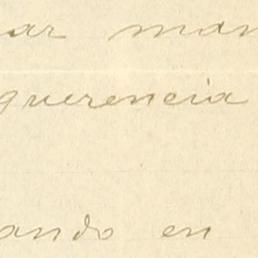 ar man
querencia
ando en